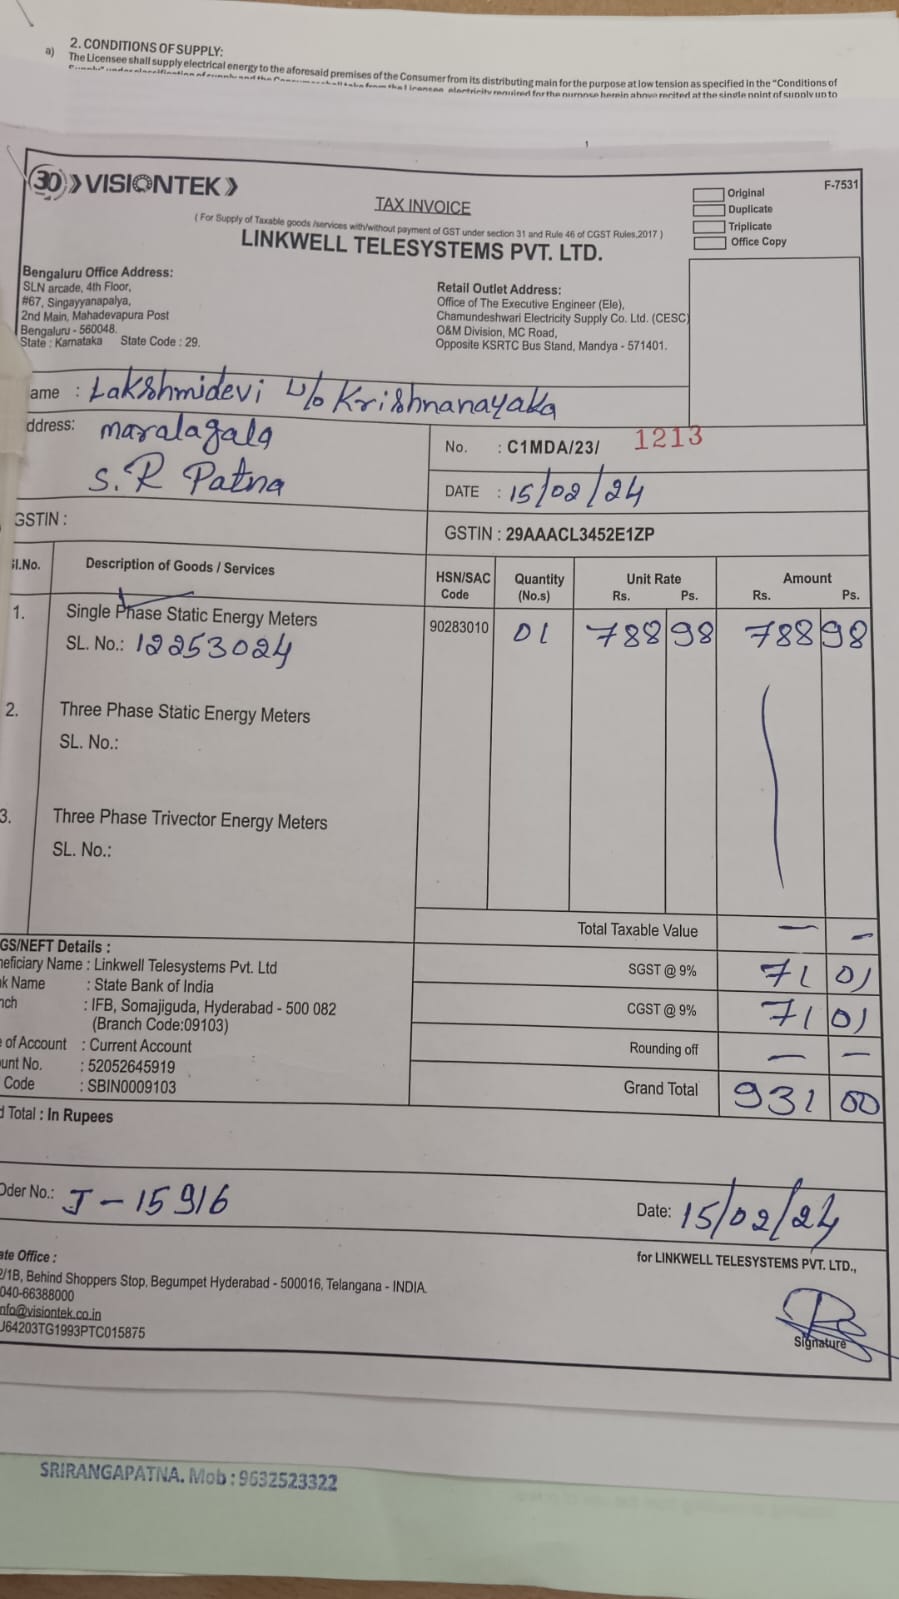 2. CONDITIONS OF SUPPLY:
a) The Licensee shall supply electrical energy to the aforesaid premises of the Consumer from its distributing main for the purpose at low tension as specified in the "Conditions of
electricity required for the purpose herein above recited at the single point of supply up to
30 VISIONTEK
TAX INVOICE
F-7531
Original
Duplicate
Triplicate
Office Copy
( For Supply of Taxable goods /services with/without payment of GST under section 31 and Rule 46 of CGST Rules,2017 )
LINKWELL TELESYSTEMS PVT. LTD.
Bengaluru Office Address:
SLN arcade, 4th Floor,
#67, Singayyanapalya,
2nd Main, Mahadevapura Post
Bengaluru - 560048.
State : Karnataka State Code : 29.
Retail Outlet Address:
Office of The Executive Engineer (Ele),
Chamundeshwari Electricity Supply Co. Ltd. (CESC)
O&M Division, MC Road,
Opposite KSRTC Bus Stand, Mandya - 571401.
ame : Lakshmidevi w/o Krishnanayaka
ddress: maralagala
S.R Patna
No. : C1MDA/23/ 1213
DATE : 15/02/24
GSTIN :
GSTIN : 29AAACL3452E1ZP
Sl.No. Description of Goods / Services HSN/SAC Code Quantity (No.s) Unit Rate Rs. Ps. Amount Rs. Ps.
1. Single Phase Static Energy Meters 90283010 01 788 98 788 98
SL. No.: 12253024
2. Three Phase Static Energy Meters
SL. No.:
3. Three Phase Trivector Energy Meters
SL. No.:
Total Taxable Value — —
SGST @ 9% 71 01
CGST @ 9% 71 01
Rounding off — —
Grand Total 931 00
GS/NEFT Details :
neficiary Name : Linkwell Telesystems Pvt. Ltd
k Name : State Bank of India
nch : IFB, Somajiguda, Hyderabad - 500 082
(Branch Code:09103)
of Account : Current Account
unt No. : 52052645919
Code : SBIN0009103
d Total : In Rupees
Oder No.: J-15916
Date: 15/02/24
for LINKWELL TELESYSTEMS PVT. LTD.,
Signature
ate Office :
2/1B, Behind Shoppers Stop, Begumpet Hyderabad - 500016, Telangana - INDIA.
040-66388000
nfo@visiontek.co.in
U64203TG1993PTC015875
SRIRANGAPATNA. Mob : 9632523322